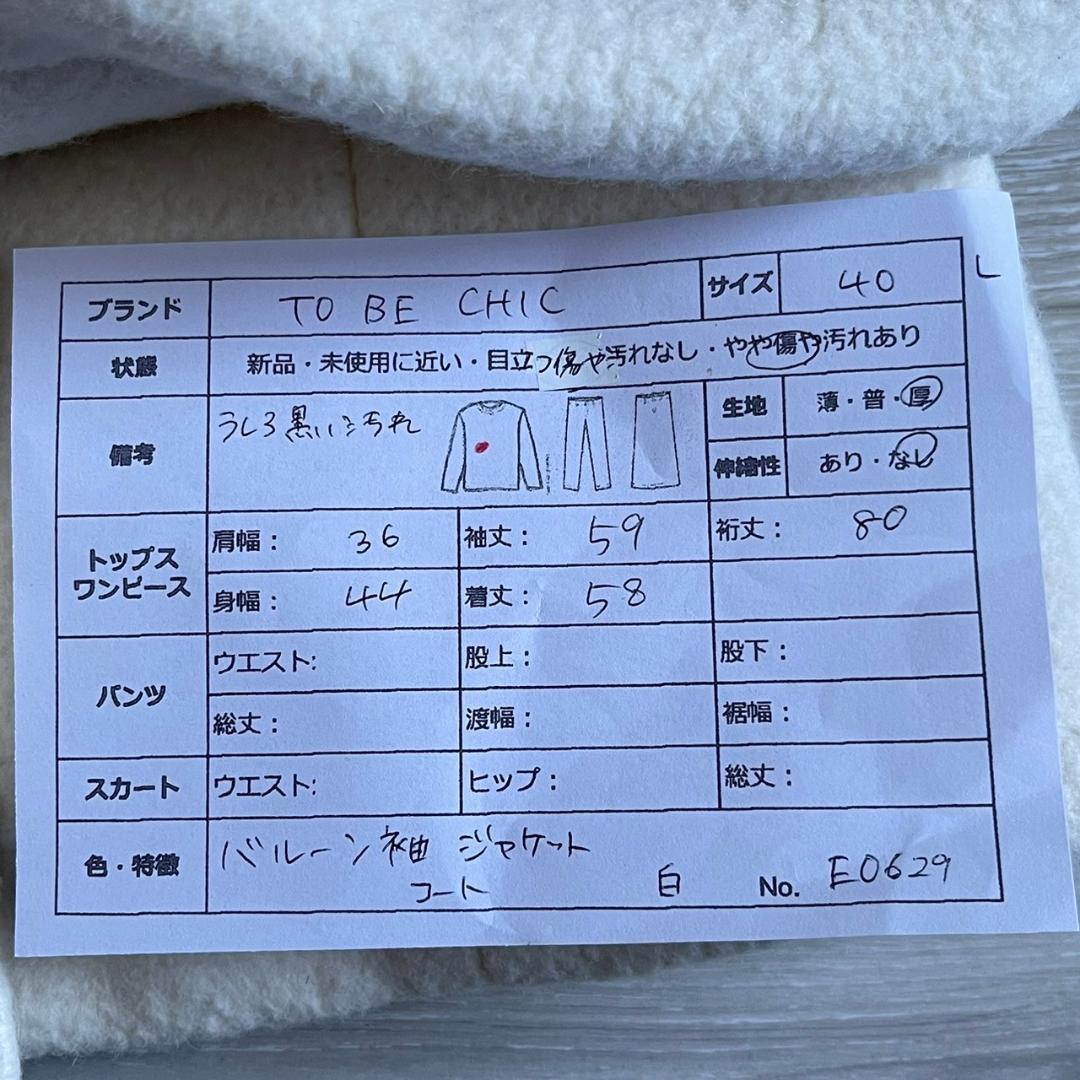 ブランド TO BE CHIC サイズ 40 L
状態 新品・未使用に近い・目立つ傷や汚れなし・やや傷や汚れあり
備考 うしろ黒い汚れ 生地 薄・普・厚
伸縮性 あり・なし
トップス
ワンピース
肩幅: 36 袖丈: 59 裄丈: 80
身幅: 44 着丈: 58
パンツ
ウエスト: 股上: 股下:
総丈: 渡幅: 裾幅:
スカート ウエスト: ヒップ: 総丈:
色・特徴 バルーン袖 ジャケット
コート 白 No. E0629